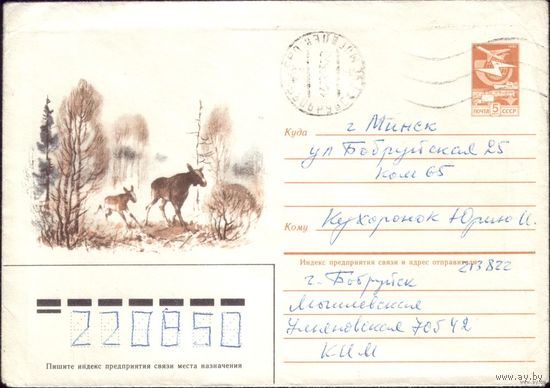 ПОЧТА 5 СССР
Куда г Минск
ул Бобруйская 25
Ком 65
Кому Кухоронок Юрию И.
Индекс предприятия связи и адрес отправителя
213822
г. Бобруйск
Могилевская
Ульяновская 70 5 42
КИМ
220850
Пишите индекс предприятия связи места назначения
www.ay.by